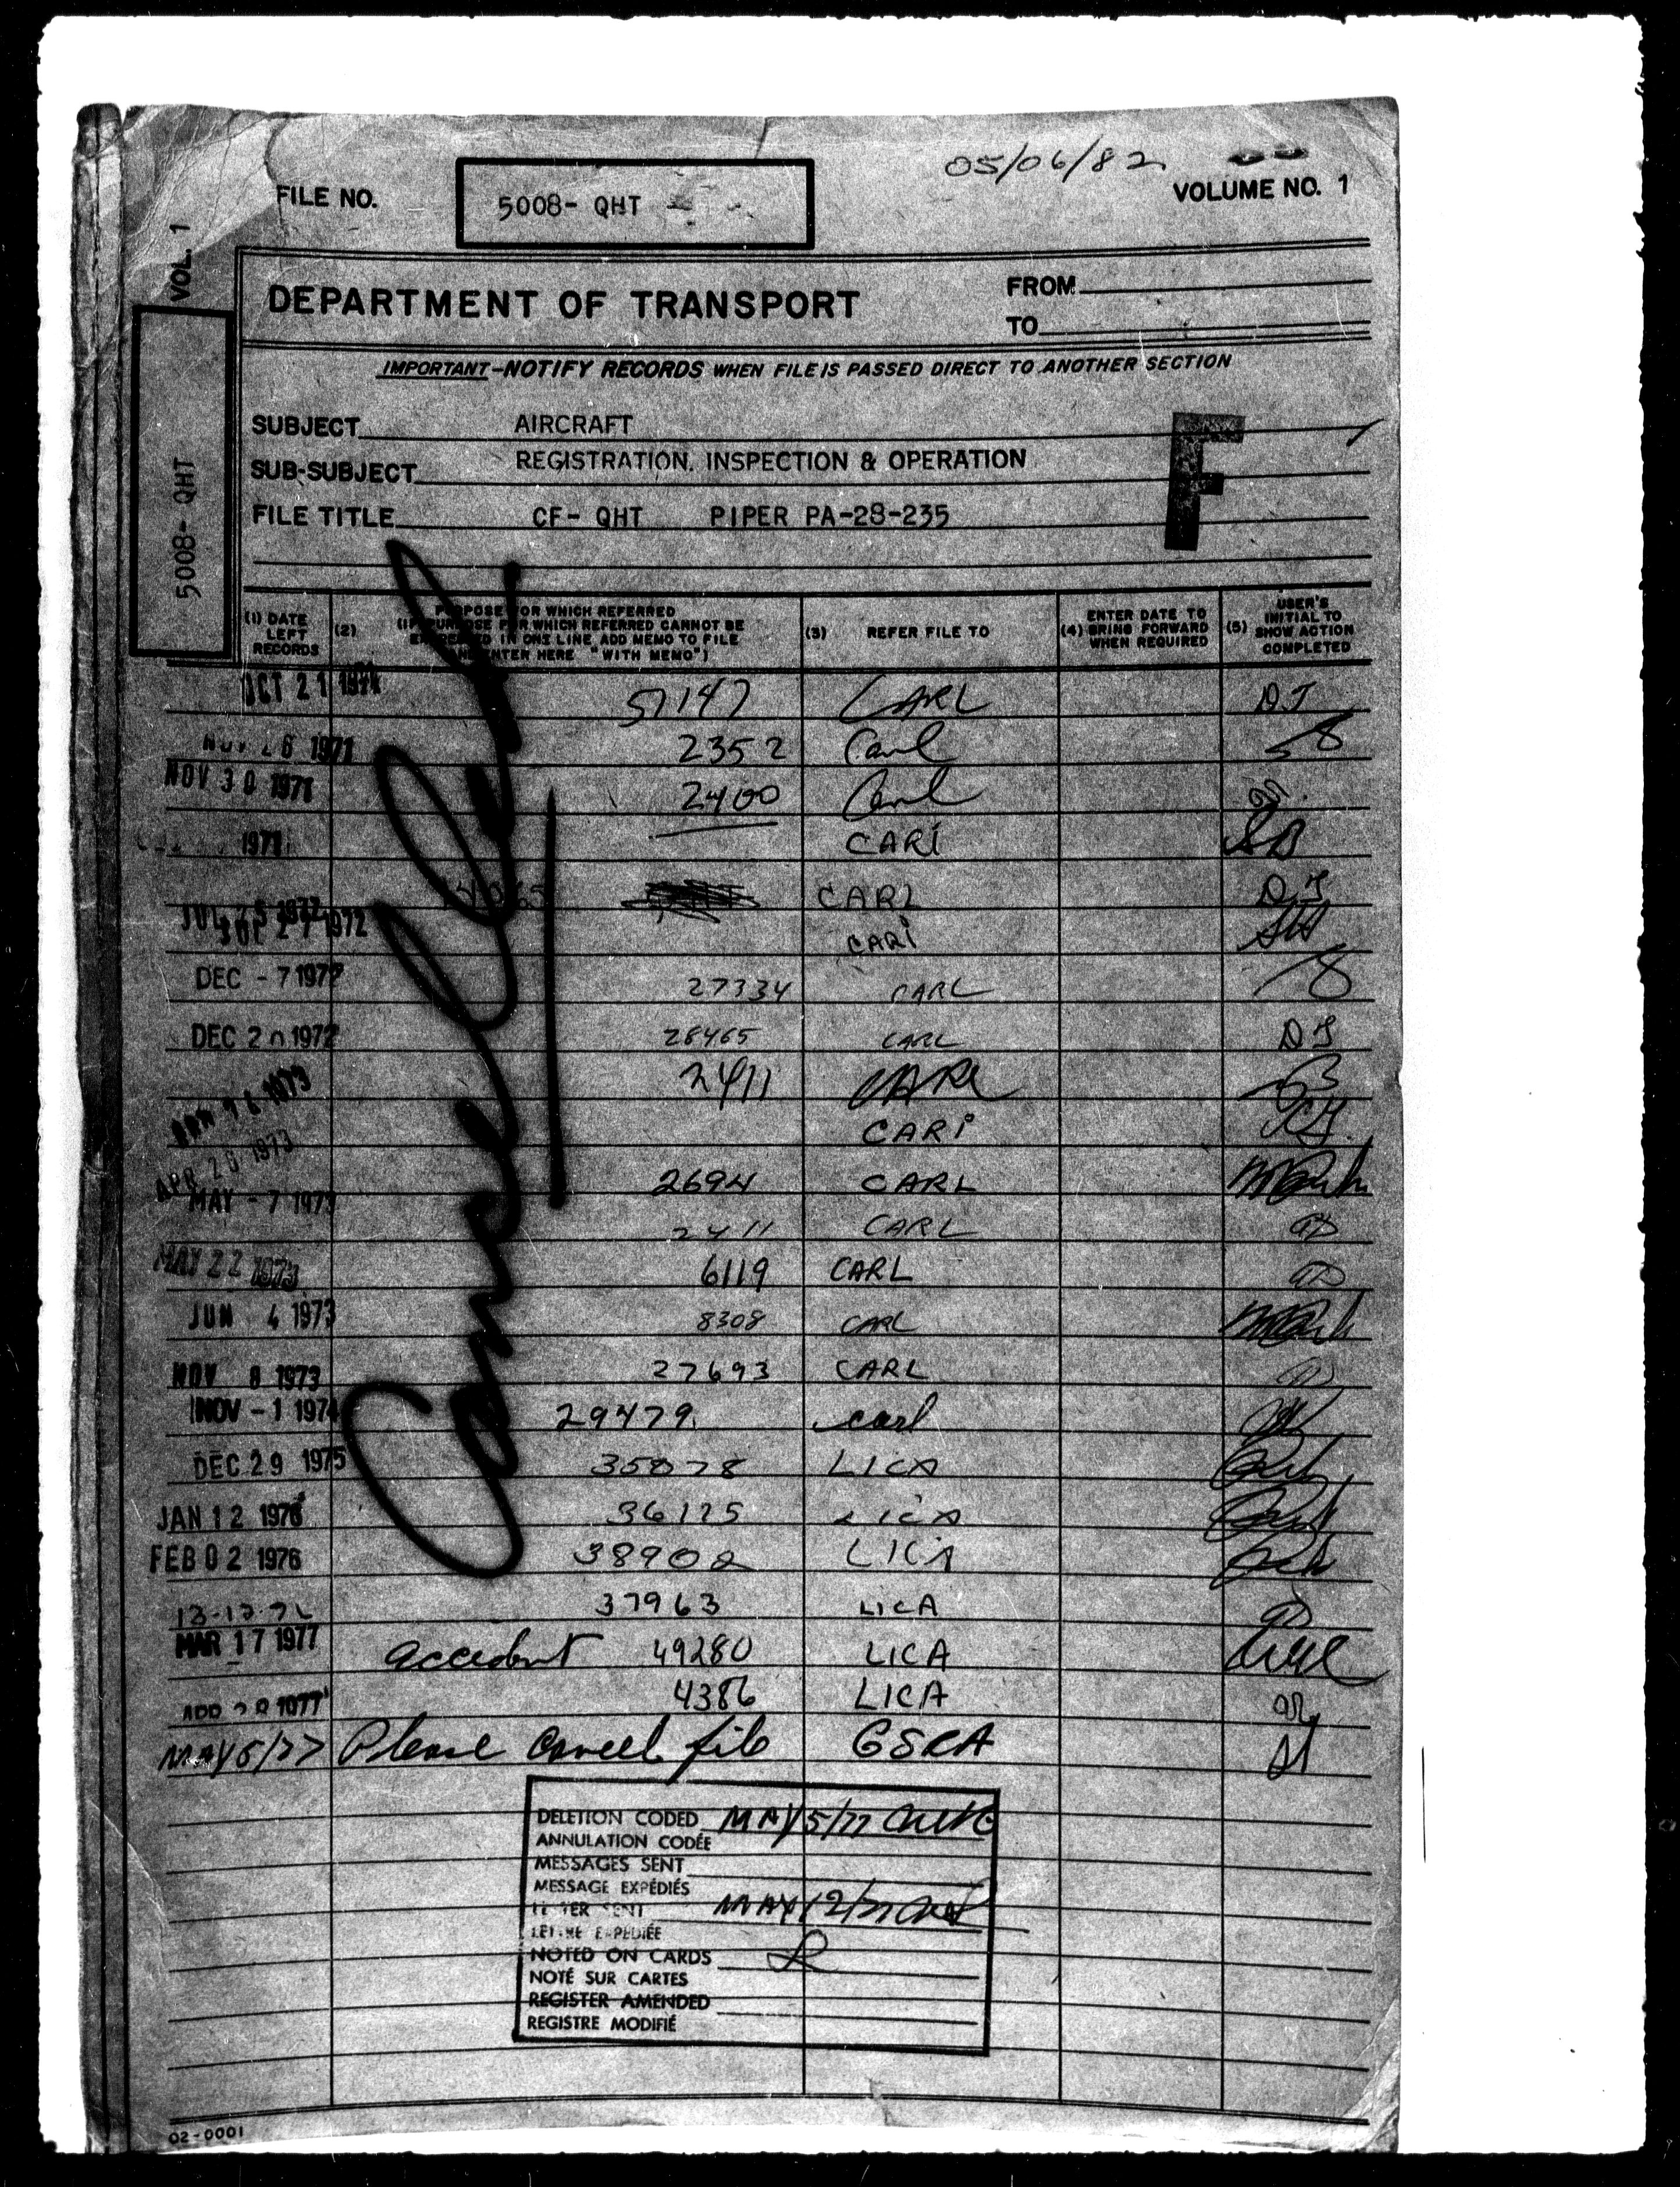 05/06/82
FILE NO. 5008- QHT VOLUME NO. 1
VOL. 1
5008- QHT
DEPARTMENT OF TRANSPORT
FROM
TO
IMPORTANT-NOTIFY RECORDS WHEN FILE IS PASSED DIRECT TO ANOTHER SECTION
SUBJECT AIRCRAFT
SUB-SUBJECT REGISTRATION, INSPECTION & OPERATION
FILE TITLE CF- QHT PIPER PA-28-235
F
(1) DATE LEFT RECORDS
(2) PURPOSE FOR WHICH REFERRED
(IF PURPOSE FOR WHICH REFERRED CANNOT BE
EXPRESSED IN ONE LINE, ADD MEMO TO FILE
AND ENTER HERE "WITH MEMO")
(3) REFER FILE TO
(4) ENTER DATE TO BRING FORWARD WHEN REQUIRED
(5) USER'S INITIAL TO SHOW ACTION COMPLETED
Cancelled
OCT 21 1971 51147 CARL DJ
NOV 26 1971 2352 Carl
NOV 30 1971 2400 Carl
1971 CARI
JUL 25 1972 CARL DJ
JUL 27 1972 CARI
DEC - 7 1972 27334 CARL
DEC 20 1972 28465 CARL DJ
JAN 1973 2411 CARL
APR 20 1973 CARI
MAY - 7 1973 2694 CARL
2411 CARL
MAY 22 1973 6119 CARL
JUN 4 1973 8308 CARL
NOV 8 1973 27693 CARL
NOV - 1 1974 29479 carl
DEC 29 1975 35878 LICA
JAN 12 1976 36125 LICA
FEB 02 1976 38902 LICA
37963 LICA
MAR 17 1977 accident 49280 LICA
APR 28 1977 4386 LICA
MAY 5/77 Please cancel file GSRA
DELETION CODED MAY 5/77
ANNULATION CODÉE
MESSAGES SENT
MESSAGE EXPÉDIÉS
LETTER SENT MAY 12/77
LETTRE EXPÉDIÉE
NOTED ON CARDS
NOTÉ SUR CARTES
REGISTER AMENDED
REGISTRE MODIFIÉ
02-0001